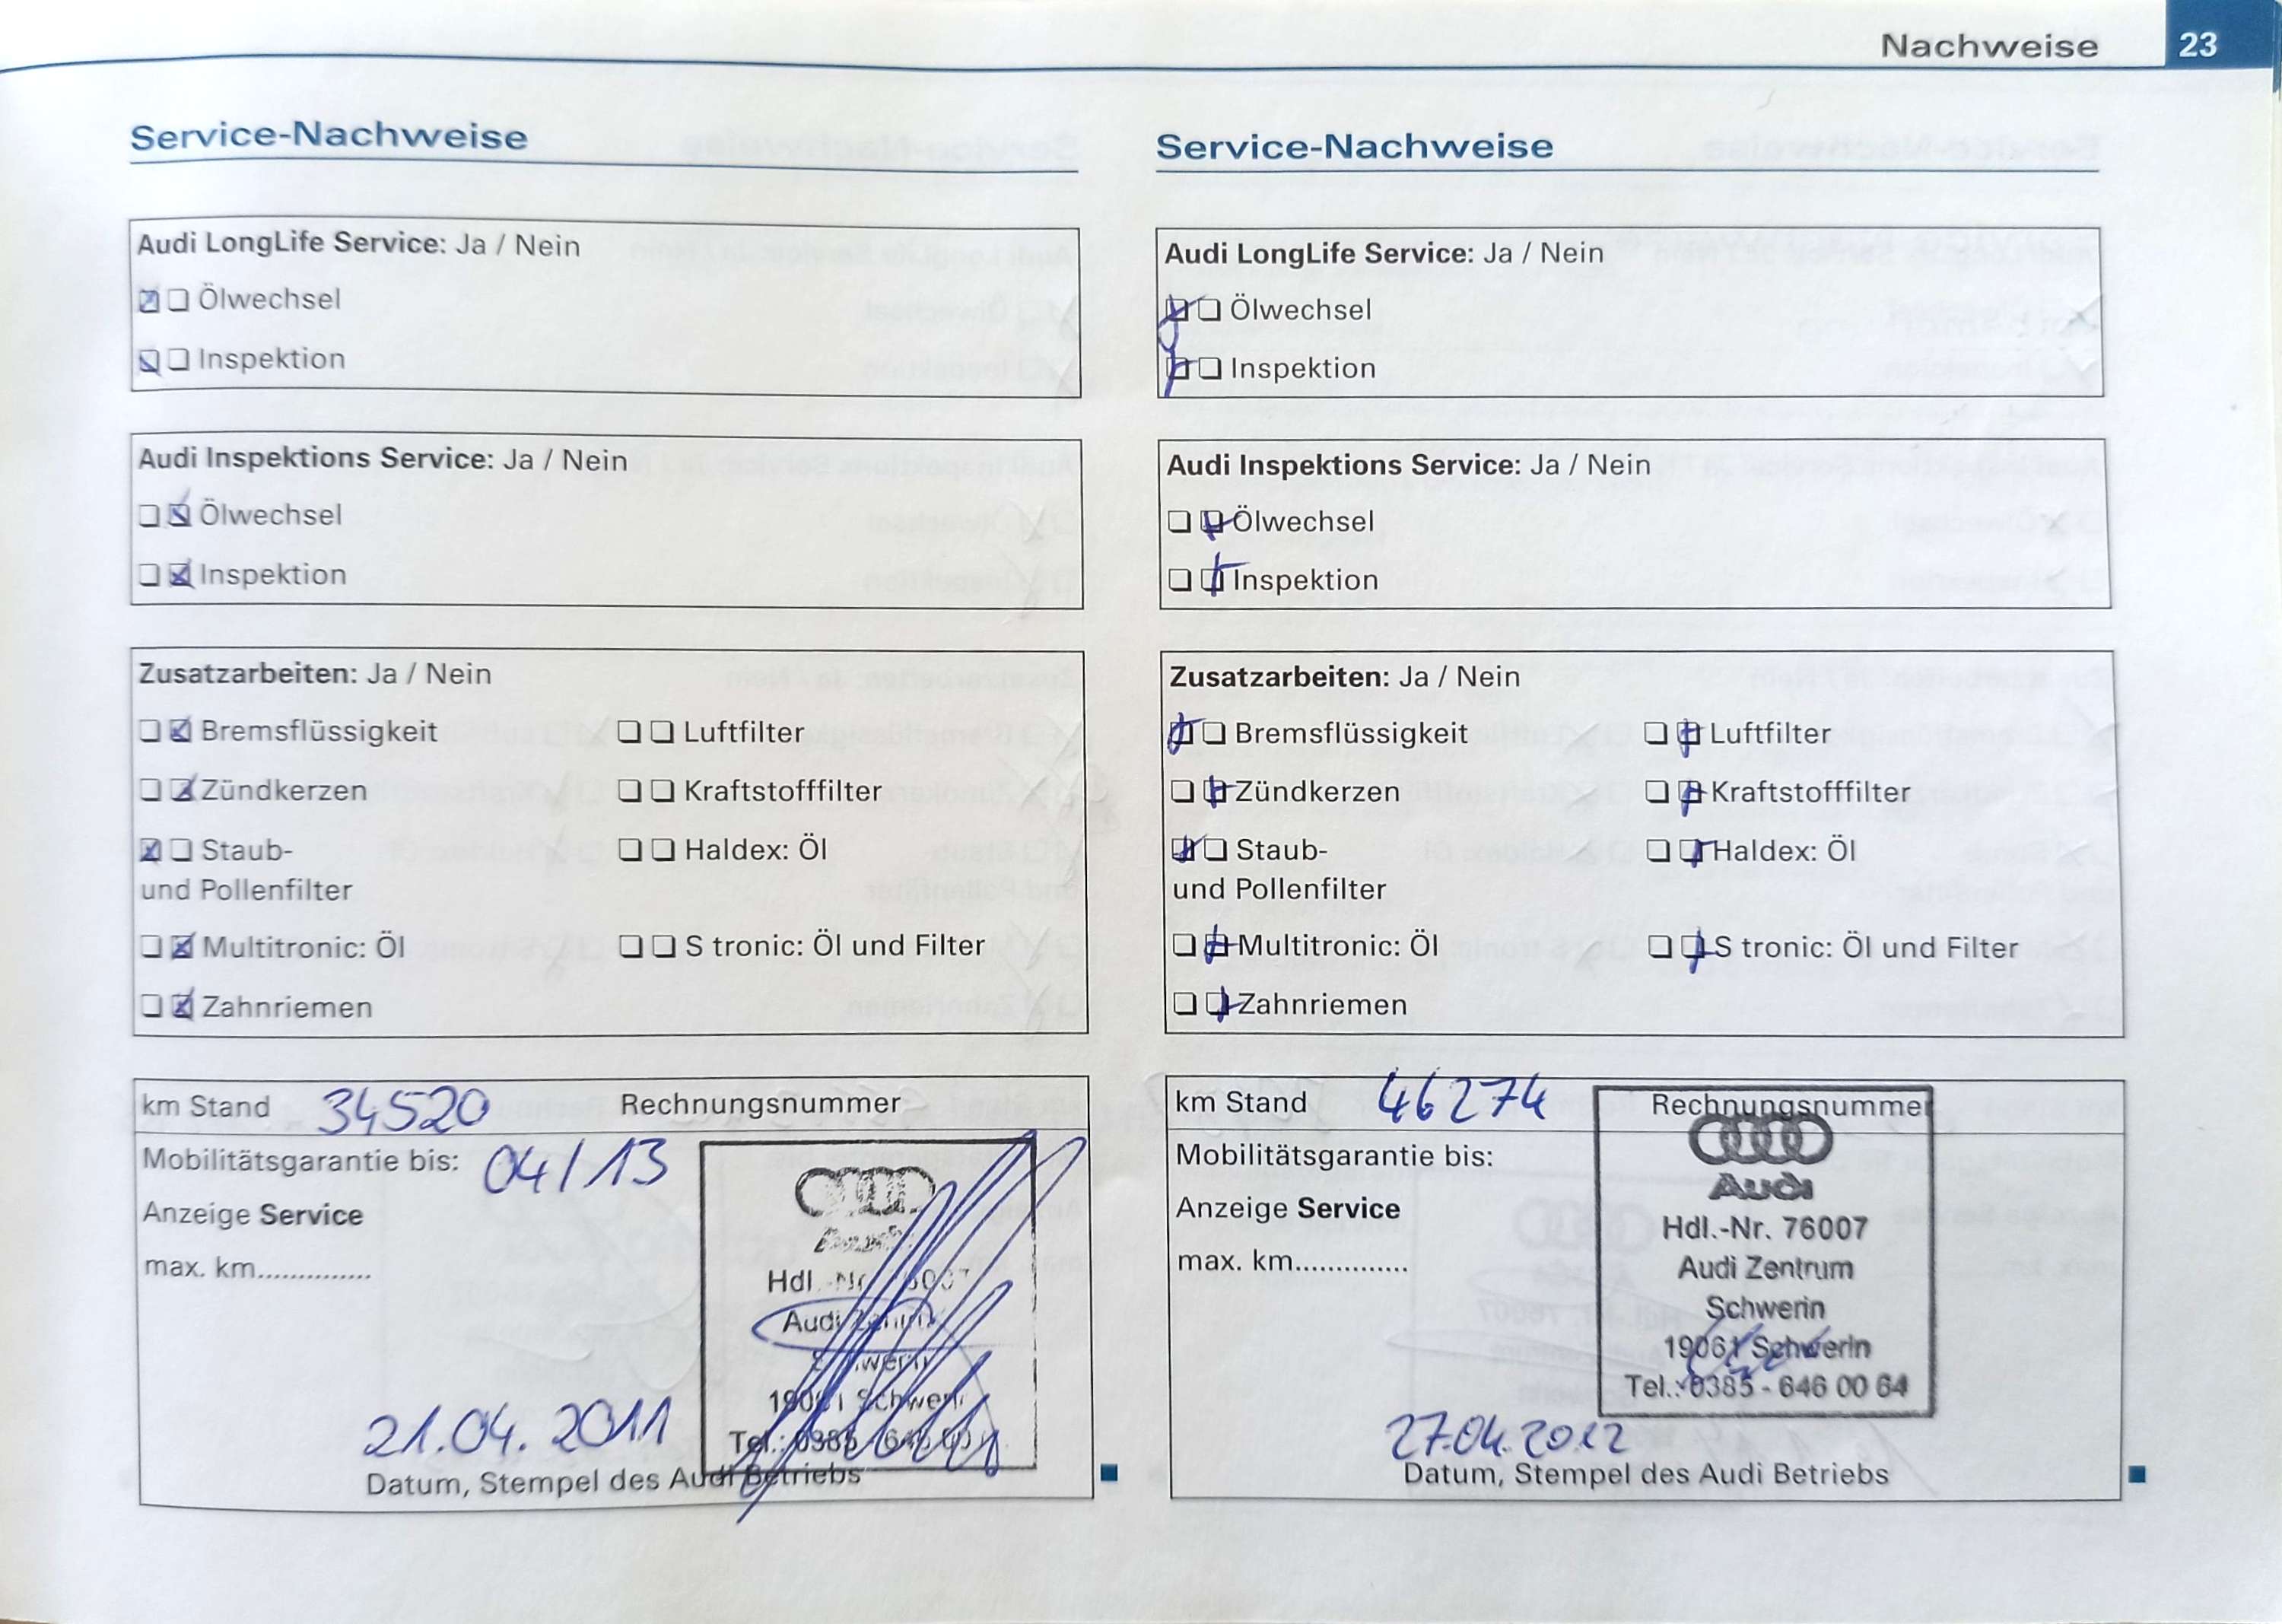 Nachweise 23
Service-Nachweise
Audi LongLife Service: Ja / Nein
Ölwechsel
Inspektion
Audi Inspektions Service: Ja / Nein
Ölwechsel
Inspektion
Zusatzarbeiten: Ja / Nein
Bremsflüssigkeit Luftfilter
Zündkerzen Kraftstofffilter
Staub- Haldex: Öl
und Pollenfilter
Multitronic: Öl S tronic: Öl und Filter
Zahnriemen
km Stand 34520 Rechnungsnummer
Mobilitätsgarantie bis: 04/13
Anzeige Service
max. km..............
Hdl.-Nr. 76007
Audi Zentrum
Schwerin
19061 Schwerin
Tel.: 0385 - 646 00
21.04.2011
Datum, Stempel des Audi Betriebs
Service-Nachweise
Audi LongLife Service: Ja / Nein
Ölwechsel
Inspektion
Audi Inspektions Service: Ja / Nein
Ölwechsel
Inspektion
Zusatzarbeiten: Ja / Nein
Bremsflüssigkeit Luftfilter
Zündkerzen Kraftstofffilter
Staub- Haldex: Öl
und Pollenfilter
Multitronic: Öl S tronic: Öl und Filter
Zahnriemen
km Stand 46274 Rechnungsnummer
Mobilitätsgarantie bis:
Anzeige Service
max. km..............
Audi
Hdl.-Nr. 76007
Audi Zentrum
Schwerin
19061 Schwerin
Tel.: 0385 - 646 00 64
27.04.2012
Datum, Stempel des Audi Betriebs